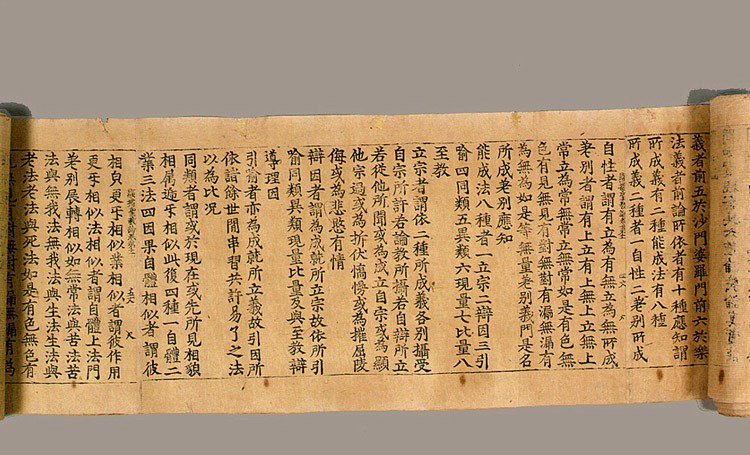 義者前五於沙門婆羅門前六於樂
法義者前論所依者有十種應知謂
所成義有二種能成法有八種
所成義有二種者一自性二老別所成
自性者謂有立為有無立為無所成
老別者謂有上立有上無上立無上
常立為常無常立無常如是有色無
色有見無見有對無對有漏無漏有
為無為如是等無量老別義門是名
所成老別應知
能成法八種者一立宗二辯因三引
喻四同類五異類六現量七比量八
至教
立宗者謂依二種所成義各別攝受
自宗所許若論教所攝若自辯所立
若從他所聞或為成立自宗或為顯
他宗過或為折伏憍慢或為摧屈陵
侮或為悲愍有情
辯因者謂為成就所立宗故依所引
喻同類異類現量比量及與至教辯
導理因
引喻者亦為成就所立義故引因所
依諸餘世間串習共許易了之法
以為比況
同類者謂或於現在或先所見相貌
相屬遞互相似此復四種一自體二
業三法四因果自體相似者謂彼
相皃更互相似業相似者謂彼作用
更互相似法相似者謂自體上法門
老別展轉相似如無常法與苦法苦
法與無我法無我法與生法生法與
老法老法與死法如是有色無色有
對無對有漏無漏有為